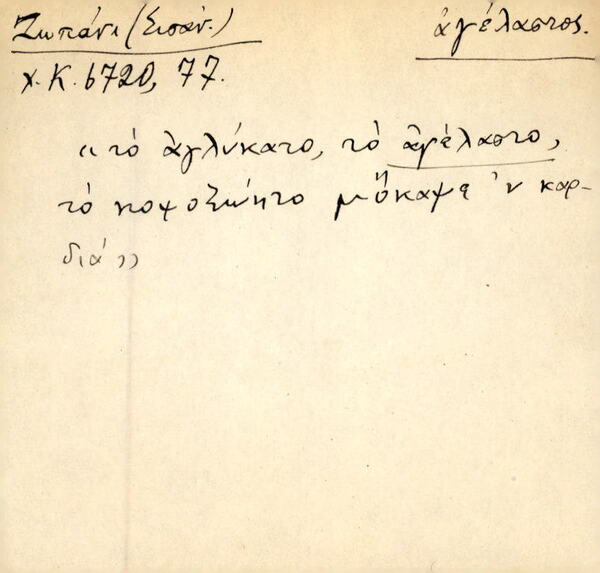 Ζωπάνι (Σισάν.)
ἀγέλαστος.
χ.Κ. 6720, 77.
«τὸ ἀγλύκατο, τὸ ἀγέλαστο,
τὸ κοψοζώητο μὄκαψε 'ν καρ-
διά»